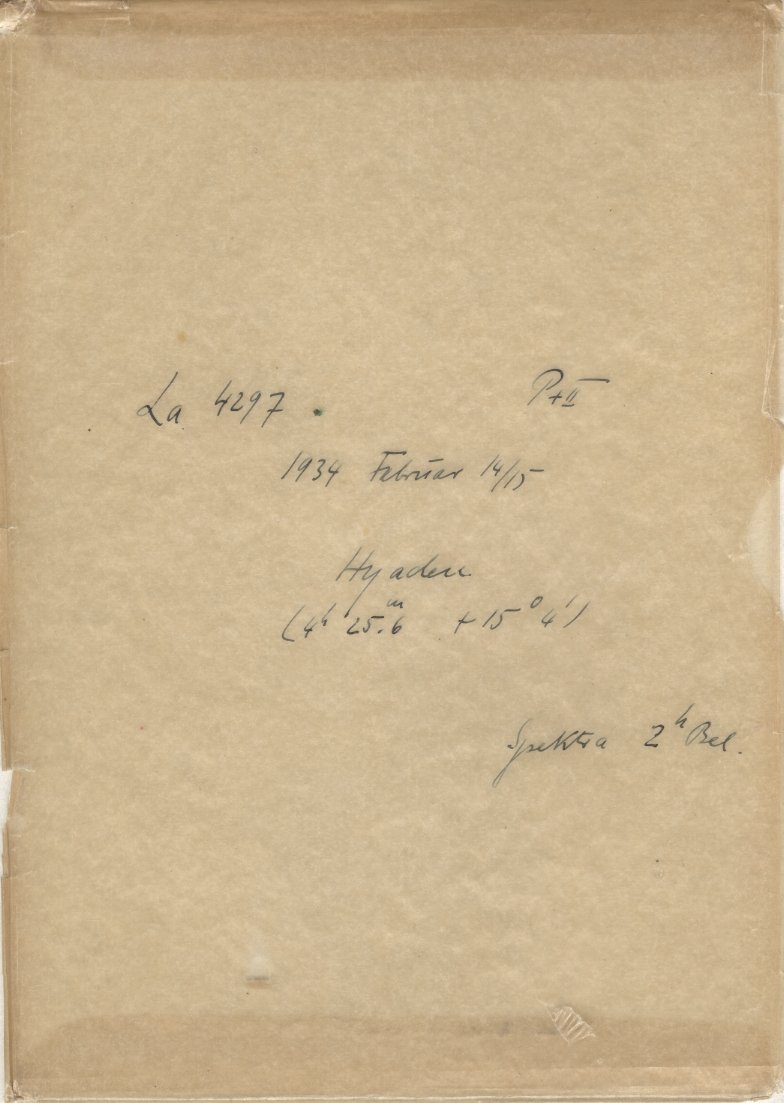 La 4297. P+II
1934 Februar 14/15
Hyaden
(4h 25.m6 +15° 4')
Spektra 2h Bel.